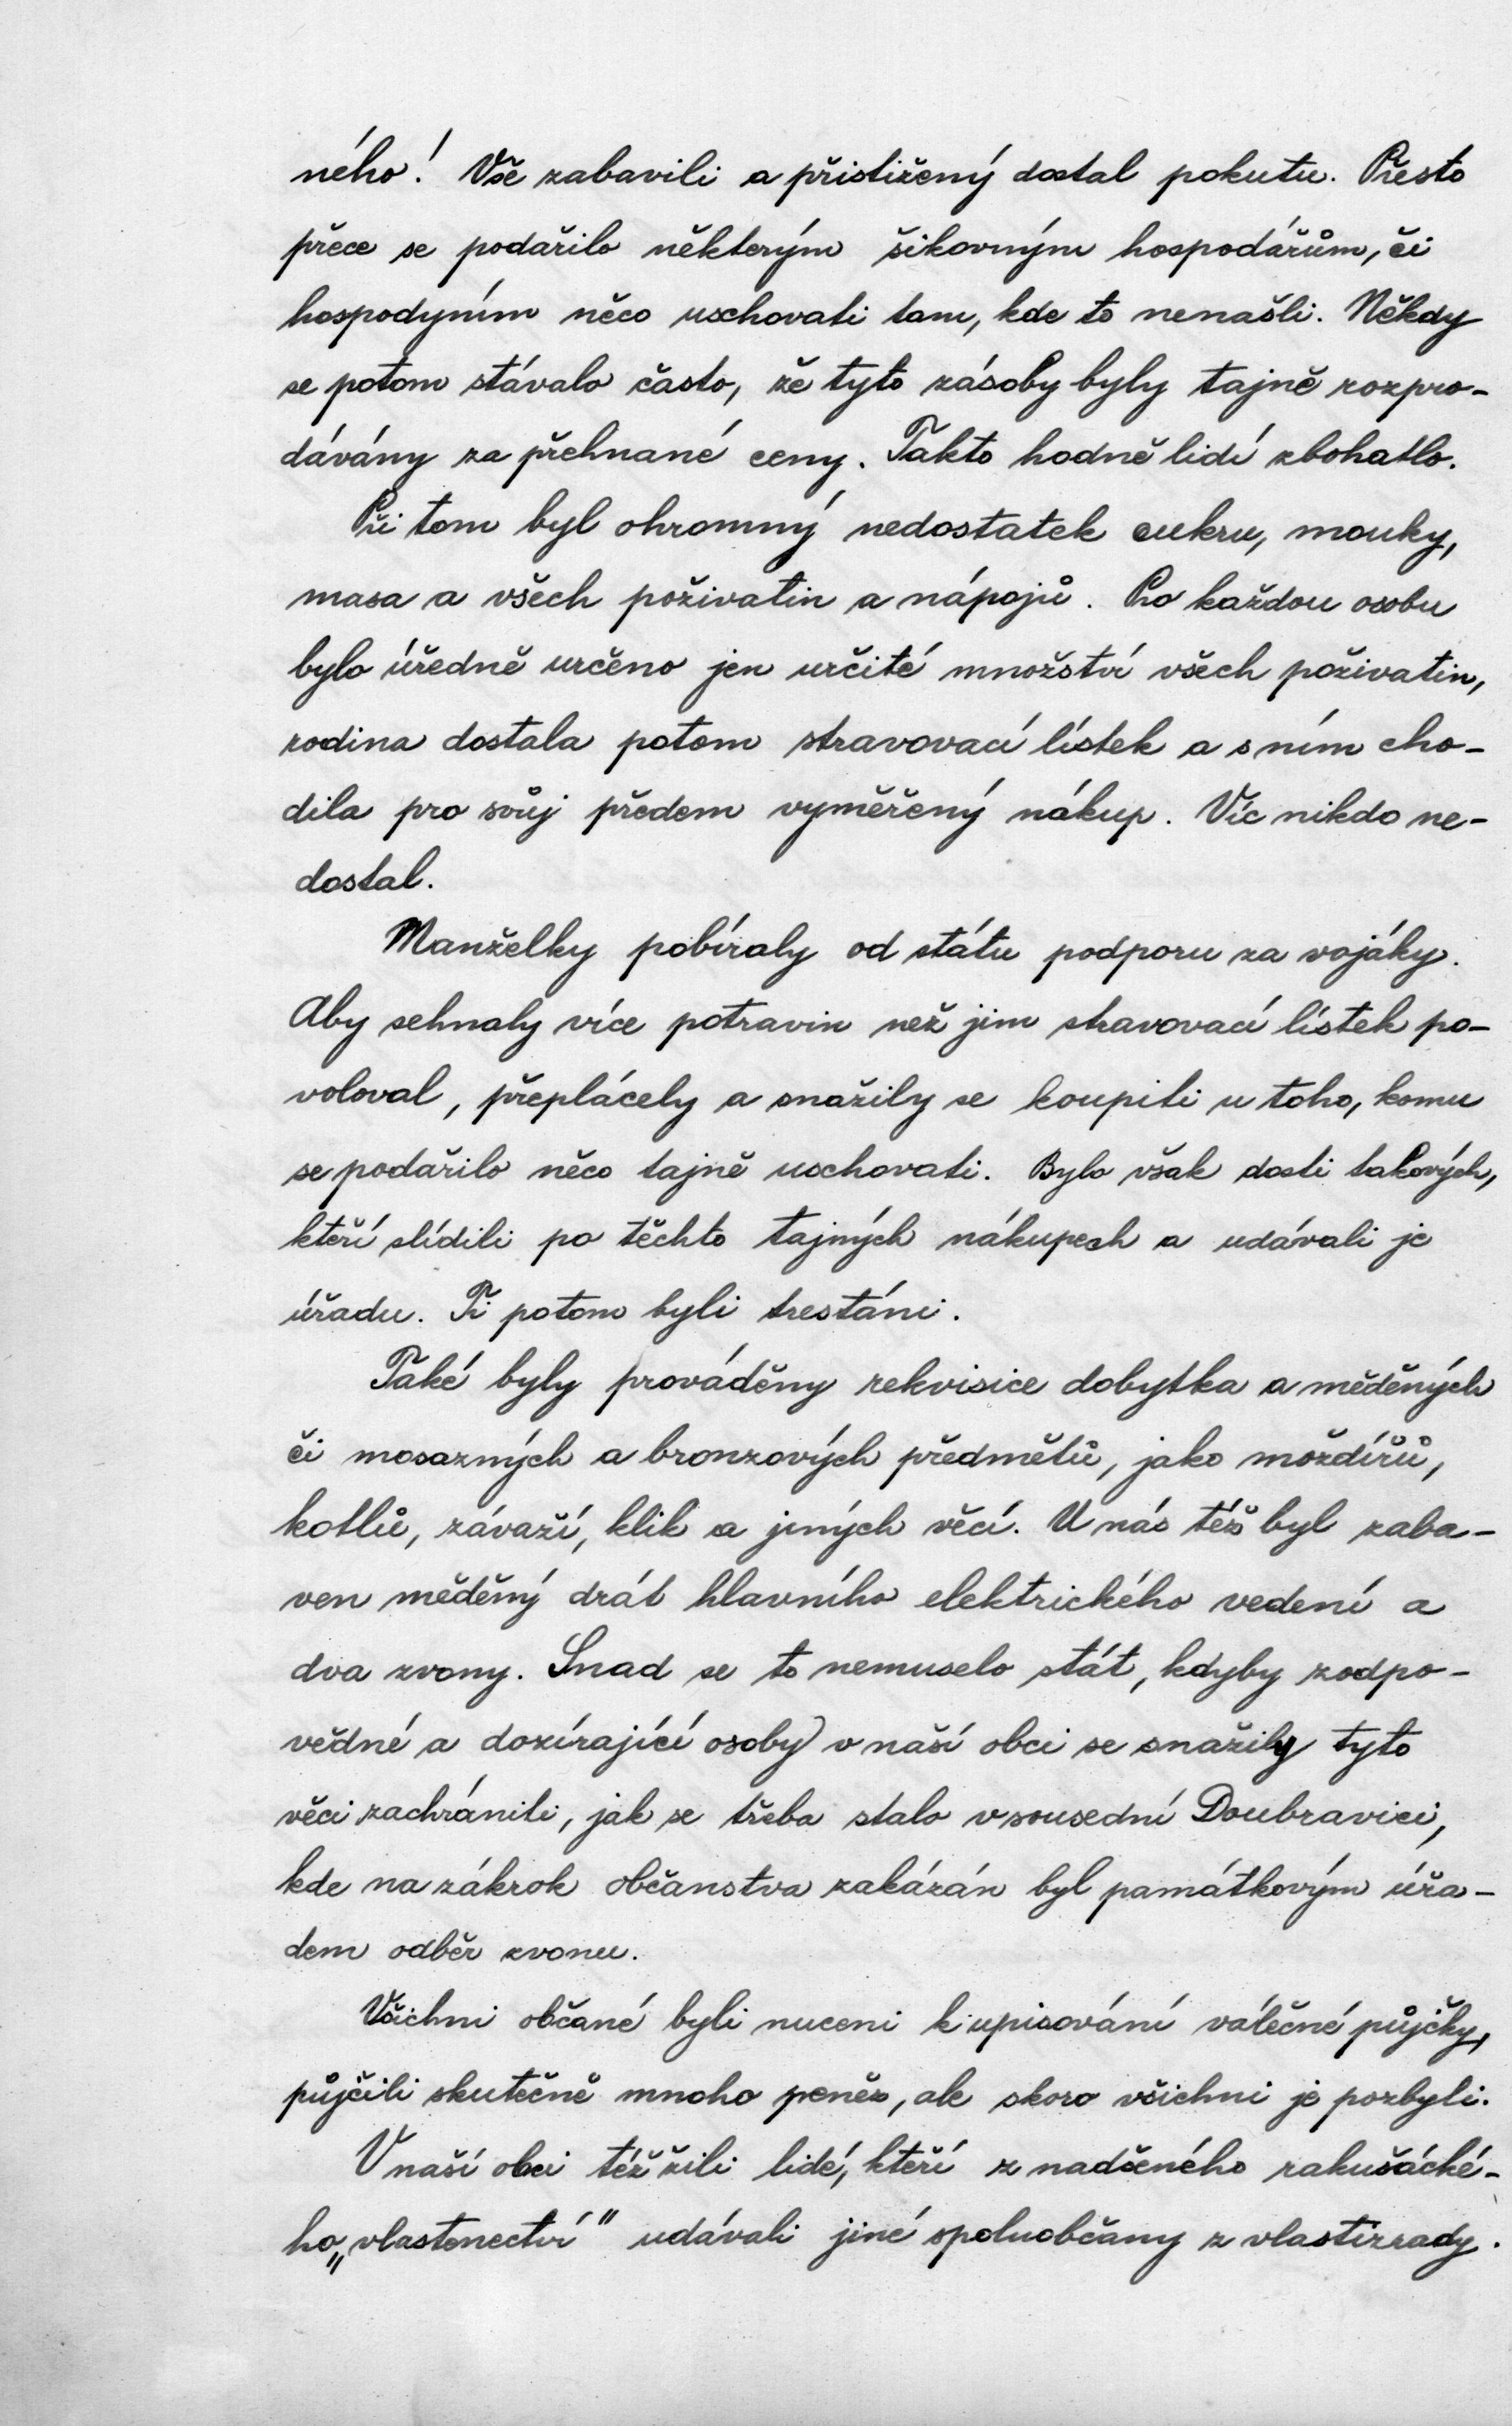 ného! Vše zabavili a přistižený dostal pokutu. Přesto
přece se podařilo některým šikovným hospodářům, či
hospodyním něco uschovati tam, kde to nenašli. Někdy
se potom stávalo často, že tyto zásoby byly tajně rozpro-
dávány za přehnané ceny. Takto hodně lidí zbohatlo.
Při tom byl ohromný nedostatek cukru, mouky,
masa a všech poživatin a nápojů. Pro každou osobu
bylo úředně určeno jen určité množství všech poživatin,
rodina dostala potom stravovací lístek a s ním cho-
dila pro svůj předem vyměřený nákup. Víc nikdo ne-
dostal.
Manželky pobíraly od státu podporu za vojáky.
Aby sehnaly více potravin než jim stravovací lístek po-
voloval, přeplácely a snažily se koupiti u toho, komu
se podařilo něco tajně uschovati. Bylo však dosti takových,
kteří slídili po těchto tajných nákupech a udávali je
úřadu. Ti potom byli trestáni.
Také byly prováděny rekvisice dobytka a měděných
či mosazných a bronzových předmětů, jako moždířů,
kotlů, závaží, klik a jiných věcí. U nás též byl zaba-
ven měděný drát hlavního elektrického vedení a
dva zvony. Snad se to nemuselo stát, kdyby zodpo-
vědné a dozírající osoby v naší obci se snažily tyto
věci zachrániti, jak se třeba stalo v sousední Doubravici,
kde na zákrok občanstva zakázán byl památkovým úřa-
dem odběr zvonu.
Všichni občané byli nuceni k upisování válečné půjčky,
půjčili skutečně mnoho peněz, ale skoro všichni je pozbyli.
V naší obci též žili lidé, kteří z nadšeného rakušácké-
ho „vlastenectví" udávali jiné spoluobčany z vlastizrady.